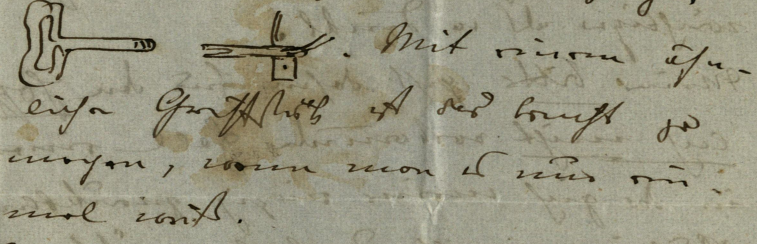 . Mit einem ähn-
lichen ist das leicht zu
machen, wenn man es nur ein-
mal weiß.